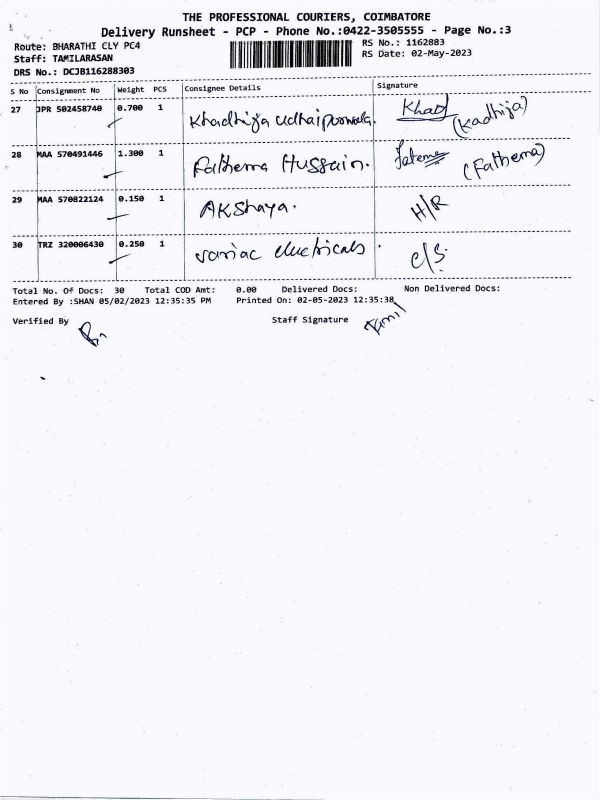 THE PROFESSIONAL COURIERS, COIMBATORE
Delivery Runsheet - PCP - Phone No.:0422-3505555 - Page No.:3
Route: BHARATHI CLY PC4
RS No.: 1162883
Staff: TAMILARASAN
RS Date: 02-May-2023
DRS No.: DCJB116288303
S No Consignment No Weight PCS Consignee Details Signature
27 JPR 502458740 0.700 1 Khadhija Udhaipurwala. Khad (Kadhija)
28 MAA 570491446 1.300 1 Fathema Hussain. Fatema (Fathema)
29 MAA 570822124 0.150 1 AKShaya. H/R
30 TRZ 320006430 0.250 1 variac electricals. C/S.
Total No. Of Docs: 30 Total COD Amt: 0.00 Delivered Docs: Non Delivered Docs:
Entered By :SHAN 05/02/2023 12:35:35 PM Printed On: 02-05-2023 12:35:38
Verified By Staff Signature Tamil